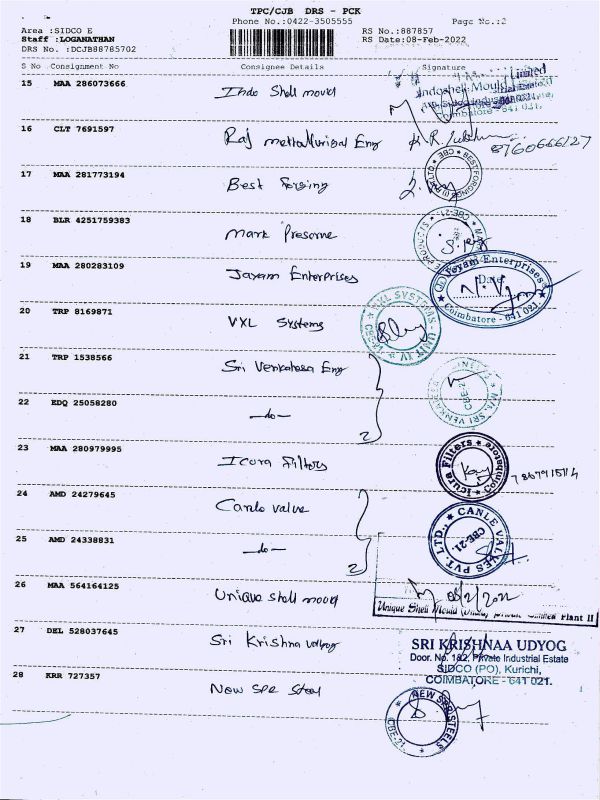 TPC/CJB DRS - PCK
Phone No.:0422-3505555 Page No.:2
Area :SIDCO E RS No.:887857
Staff :LOGANATHAN RS Date:08-Feb-2022
DRS No. :DCJB88785702
S No Consignment No Consignee Details Signature
15 MAA 286073666 Indo Shell mould
Indoshell Mould Limited
Coimbatore - 641 021.
16 CLT 7691597 Raj mettallurgical Eng
8760666127
17 MAA 281773194 Best forging
BEST FORGING
18 BLR 4251759383 Mark Preserve
19 MAA 280283109 Jayam Enterprises
Jayam Enterprises
Date:
Coimbatore - 641 021
20 TRP 8169871 VXL Systems
VXL SYSTEMS-UNIT XV
21 TRP 1538566 Sri Venkatesa Eng
22 EDQ 25058280 —do—
23 MAA 280979995 Icura Filters
Icura Filters Coimbatore
24 AMD 24279645 Canle valve
CANLE VALVES PVT. LTD.,
CBE-21.
25 AMD 24338831 —do—
26 MAA 564164125 Unique shell mould
08/2/2022
Unique Shell Mould (India) Private Limited Plant II
27 DEL 528037645 Sri Krishna udyog
SRI KRISHNAA UDYOG
Door. No. 182, Private Industrial Estate
SIDCO (PO), Kurichi,
COIMBATORE - 641 021.
28 KRR 727357 New SPR Steel
NEW SPR STEELS
CBE-21